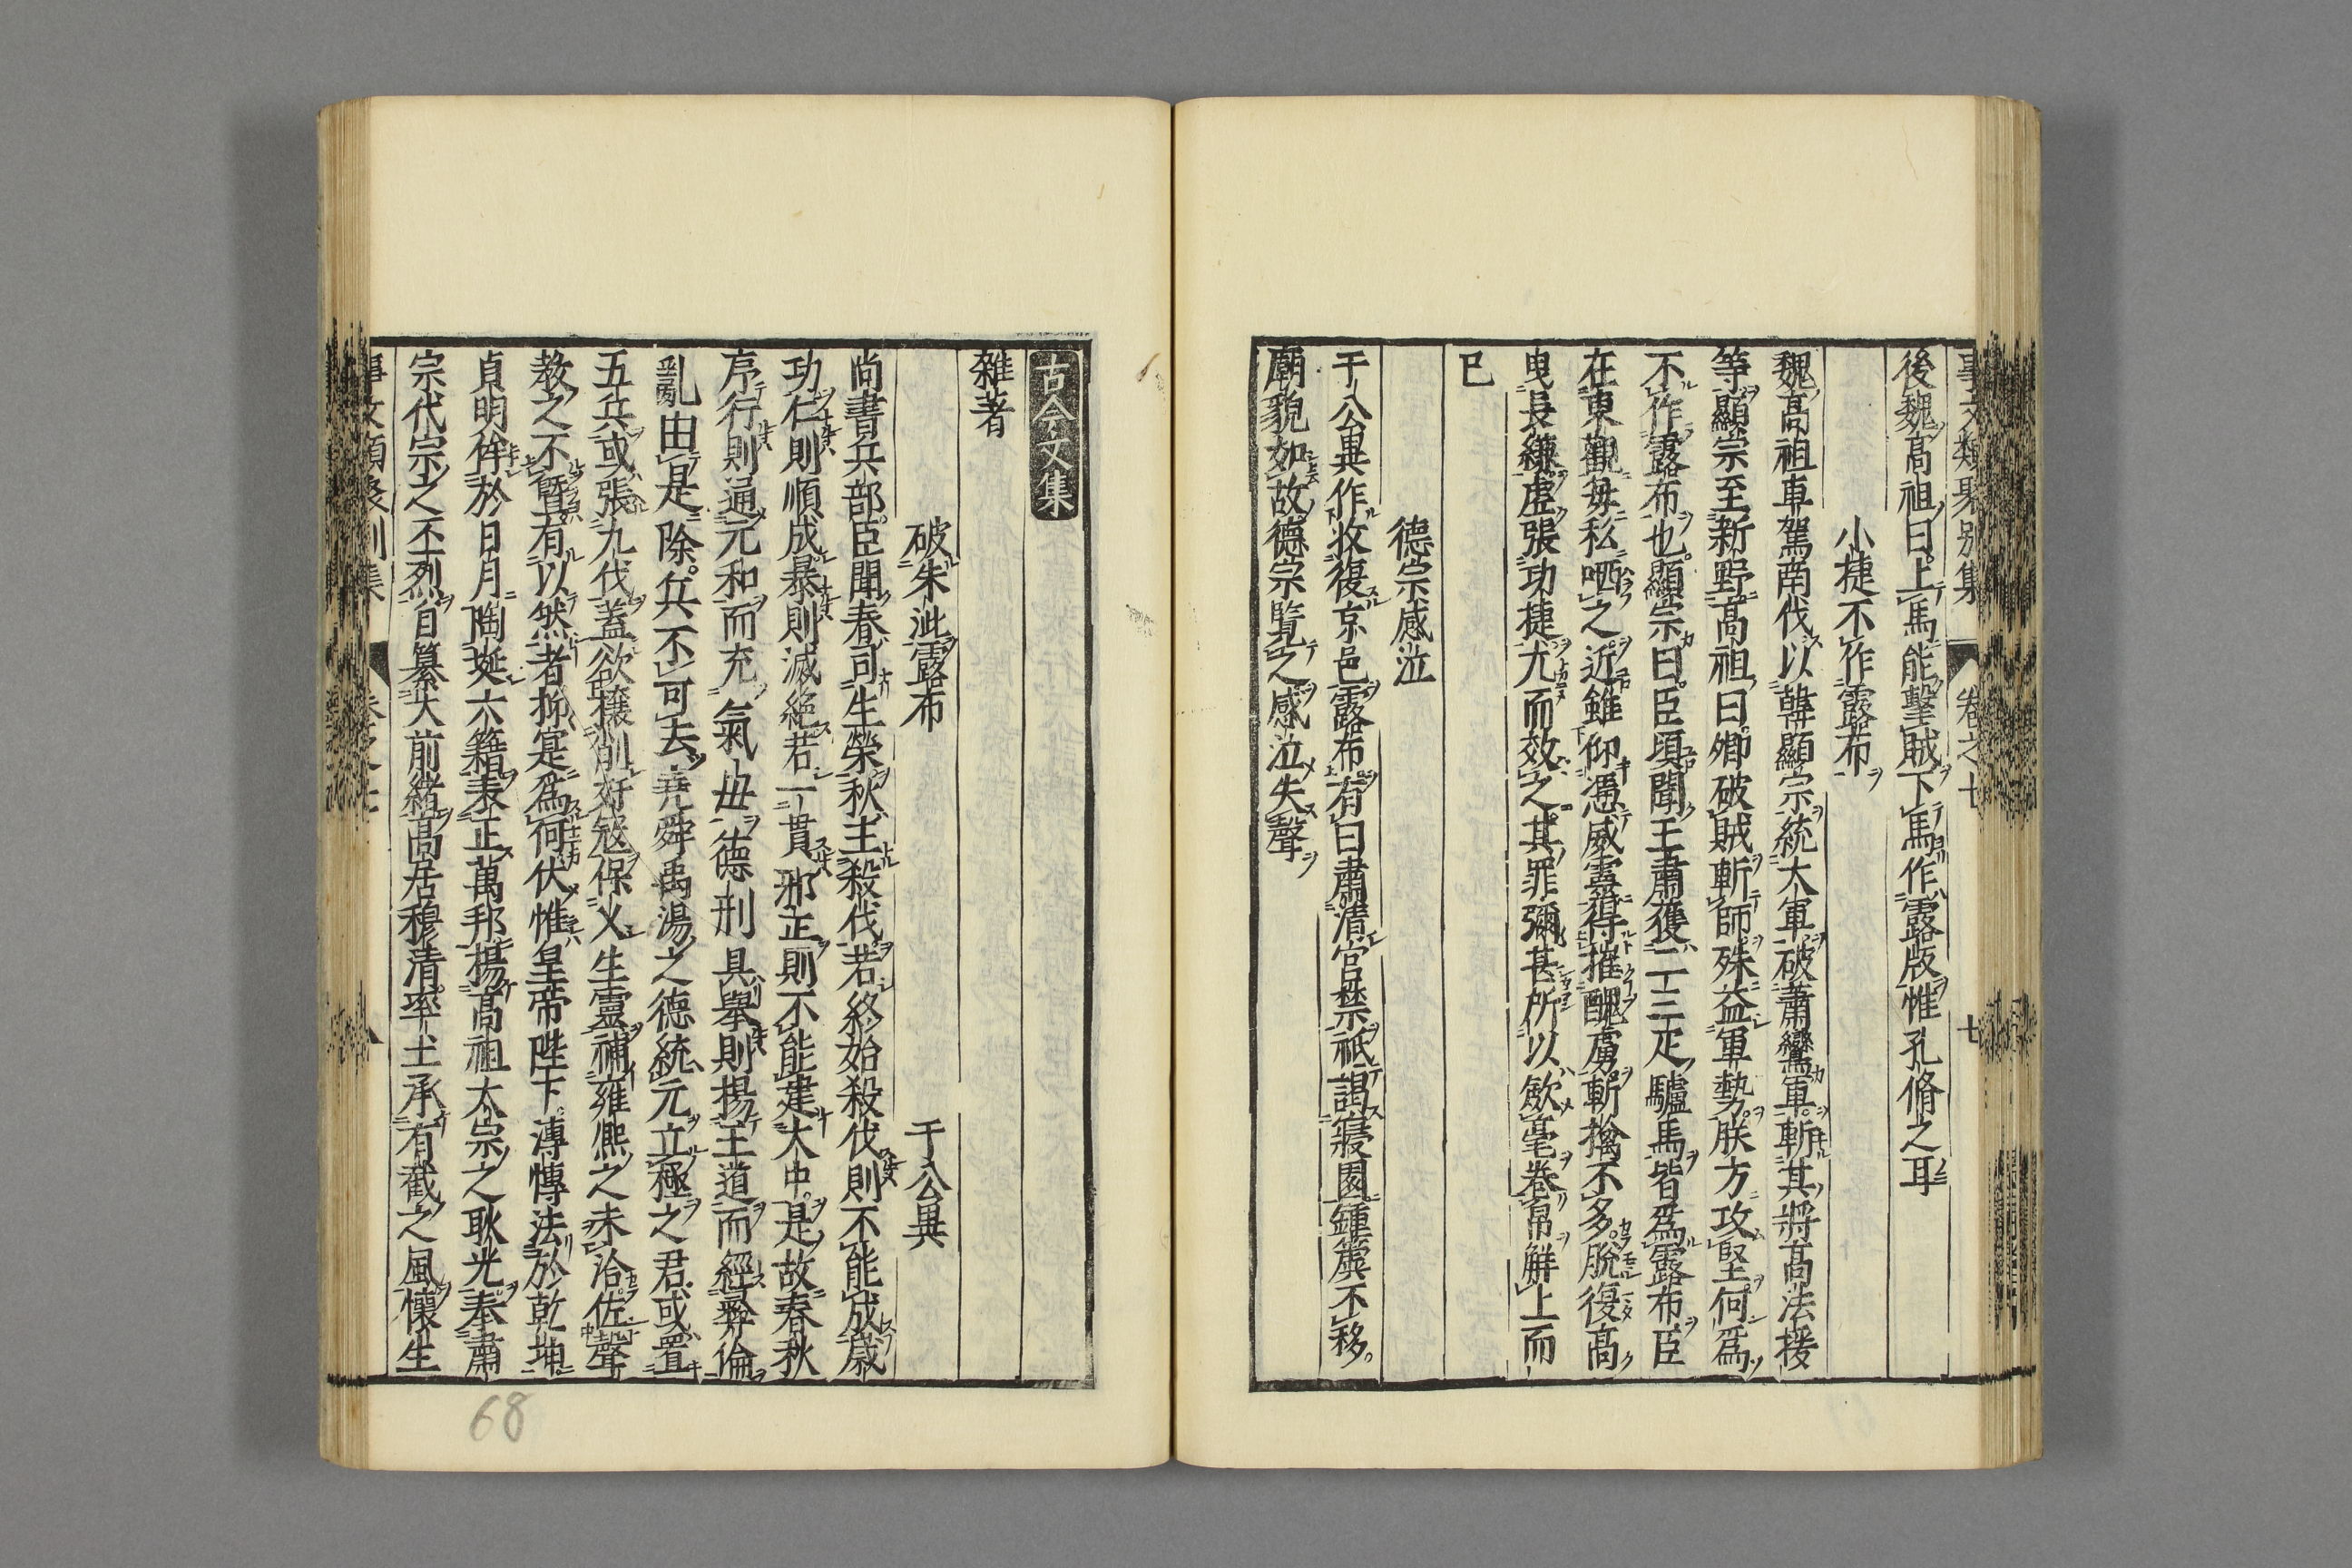 事文類聚別集 卷之七 七
後魏高祖曰上馬能擊賊下馬作露版惟孔脩之耳
小捷不作露布
魏高祖車駕南伐以韓顯宗統大軍破蕭鸞軍斬其將高法援
等顯宗至新野高祖曰卿破賊斬師殊益軍勢朕方攻堅何爲
不作露布也顯宗曰臣頃聞王肅獲二三疋驢馬皆爲露布臣
在東觀每私哂之近雖仰憑威靈得摧醜虜斬擒不多脫復高
曳長縑虛張功捷尤而效之其罪彌甚所以斂毫卷帛解上而
已
德宗感泣
于公異作收復京邑露布有曰肅清宮禁祗謁寢園鍾簴不移
廟貌如故德宗覽之感泣失聲
古今文集
雜著
破朱泚露布 于公異
尚書兵部臣聞春司生榮秋主殺伐若終始殺伐則不能成歲
功仁則順成暴則滅絕若一貫邪正則不能建大中是故春秋
序行則通元和而充氣毋德刑具舉則揚王道而經彞倫
亂由是除兵不可去堯舜禹湯之德統元立極之君或置
五兵或張九伐蓋欲攘削奸寇保乂生靈補雍熙之未洽佐聲
教之不曁有以然者抑寔爲何伏惟皇帝陛下溥博法於乾坤
貞明侔於日月陶埏六籍表正萬邦揚高祖太宗之耿光奉肅
宗代宗之丕烈自纂大前緒高居穆清率土承有截之風懷生
事文類聚別集 卷之七 八
68